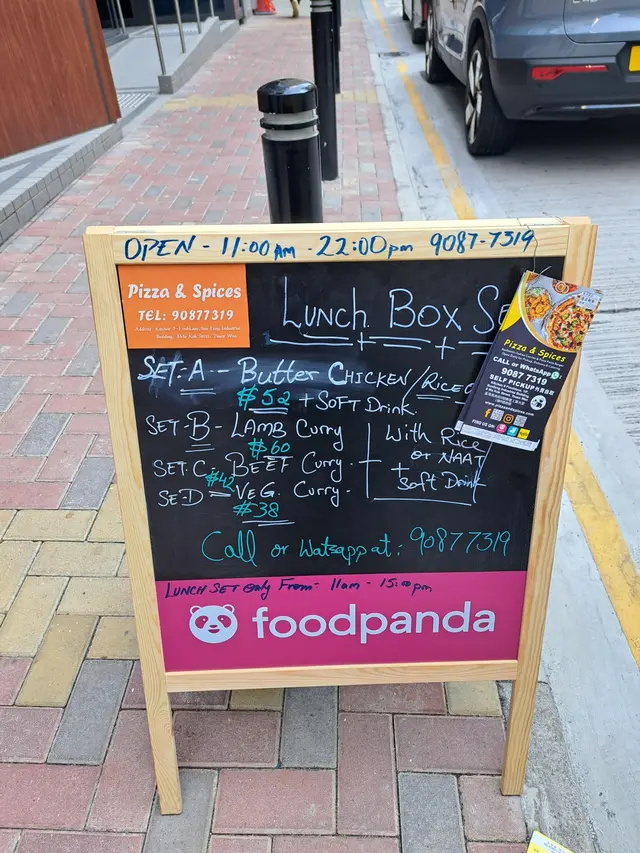 OPEN - 11:00 AM - 22:00 pm 9087-7319
Pizza & Spices
TEL: 90877319
LUNCH BOX SE
SET-A - Butter CHICKEN / RICE
$52 + SOFT Drink.
SET-B - LAMB Curry
$60
SET. C - BEEF Curry.
$42
SE-D - VEG. Curry.
$38
With Rice
or NAAT
+ Soft Drink
Pizza & Spices
CALL or WhatsApp
9087 7319
SELF PICKUP
FIND US ON:
Call or Watsapp at: 90877319
LUNCH SET only From - 11am - 15:00pm
foodpanda